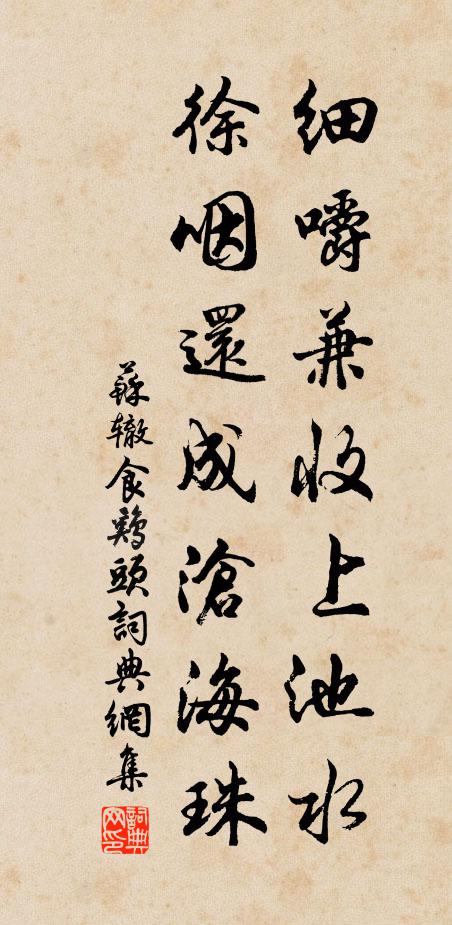 细嚼兼收上池水
徐咽還成滄海珠
蘇辙食鷄頭詞典網集
詞典网印